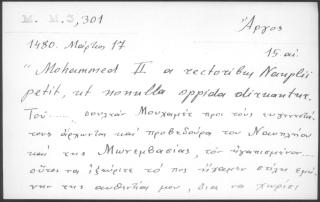 M. M. 3, 301
Ἄργος
1480. Μάρτιος 17
15 αἰ.
"Mohammed II a rectoribus Nauplii
petit, ut nonnulla oppida diruantur.
Τοῦ...... σουλτὰν Μουχαμὲτ πρὸς τοὺς εὐγενεστά-
τους ἄρχοντας καὶ προβεδοῦρο τοῦ Ναυπλίου
καὶ τῆς Μωνεμβασίας, τὸν ἠγαπημένον....
οὕτως νὰ ἠξεύρετε τὸ πῶς εἴχαμεν στείλει
τὴν τῆς αὐθεντίας μου, διὰ νὰ χωρίσει